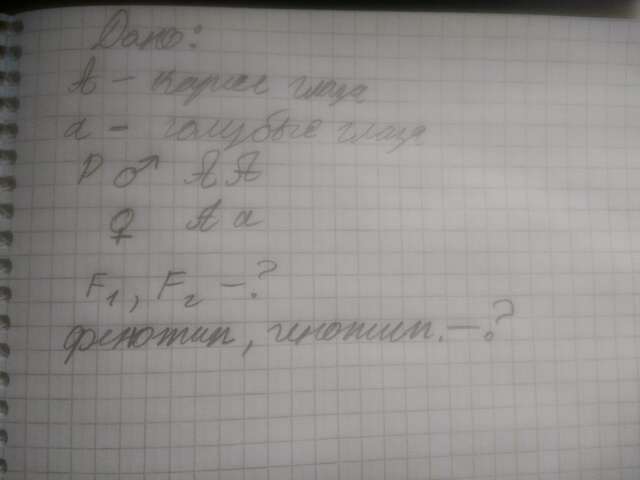 Дано:
А – карие глаза
а – голубые глаза
Р ♂ АА
♀ Аа
F₁, F₂ – ?
фенотип, генотип. – ?